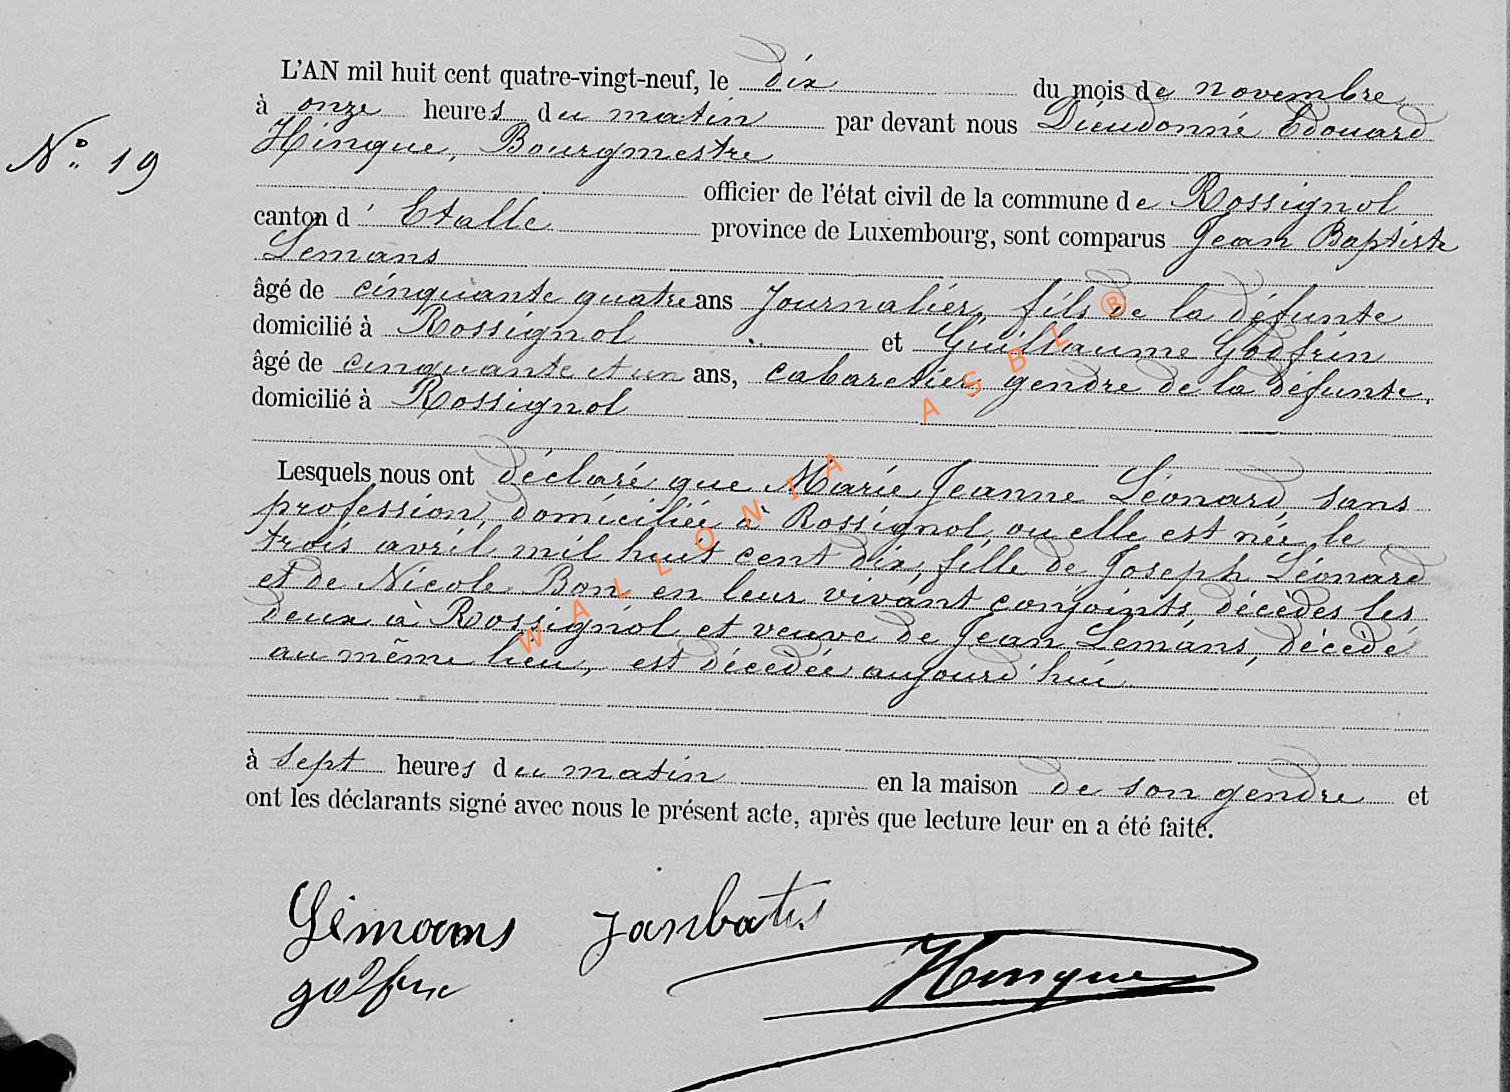 L'AN mil huit cent quatre-vingt-neuf, le dix du mois de novembre
à onze heures du matin par devant nous Dieudonné Edouard
Nº 19
Hinque, Bourgmestre
officier de l'état civil de la commune de Rossignol
canton d' Etalle province de Luxembourg, sont comparus Jean Baptiste
Lemans
âgé de cinquante quatre ans Journalier, fils de la défunte
domicilié à Rossignol et Guillaume Godfrin
âgé de cinquante et un ans, cabaretier, gendre de la défunte,
domicilié à Rossignol
Lesquels nous ont déclaré que Marie Jeanne Léonard, sans
profession, domiciliée à Rossignol, ou elle est née le
trois avril mil huit cent dix, fille de Joseph Léonard
et de Nicole Bon, en leur vivant conjoints, décèdés les
deux à Rossignol et veuve de Jean Lemans, décèdé
au même lieu, est décedée aujourd'hui
à sept heures du matin en la maison de son gendre et
ont les déclarants signé avec nous le présent acte, après que lecture leur en a été faite.
Lémans Janbatis
godfrin
Hinque
WALLONIA ASBL ®